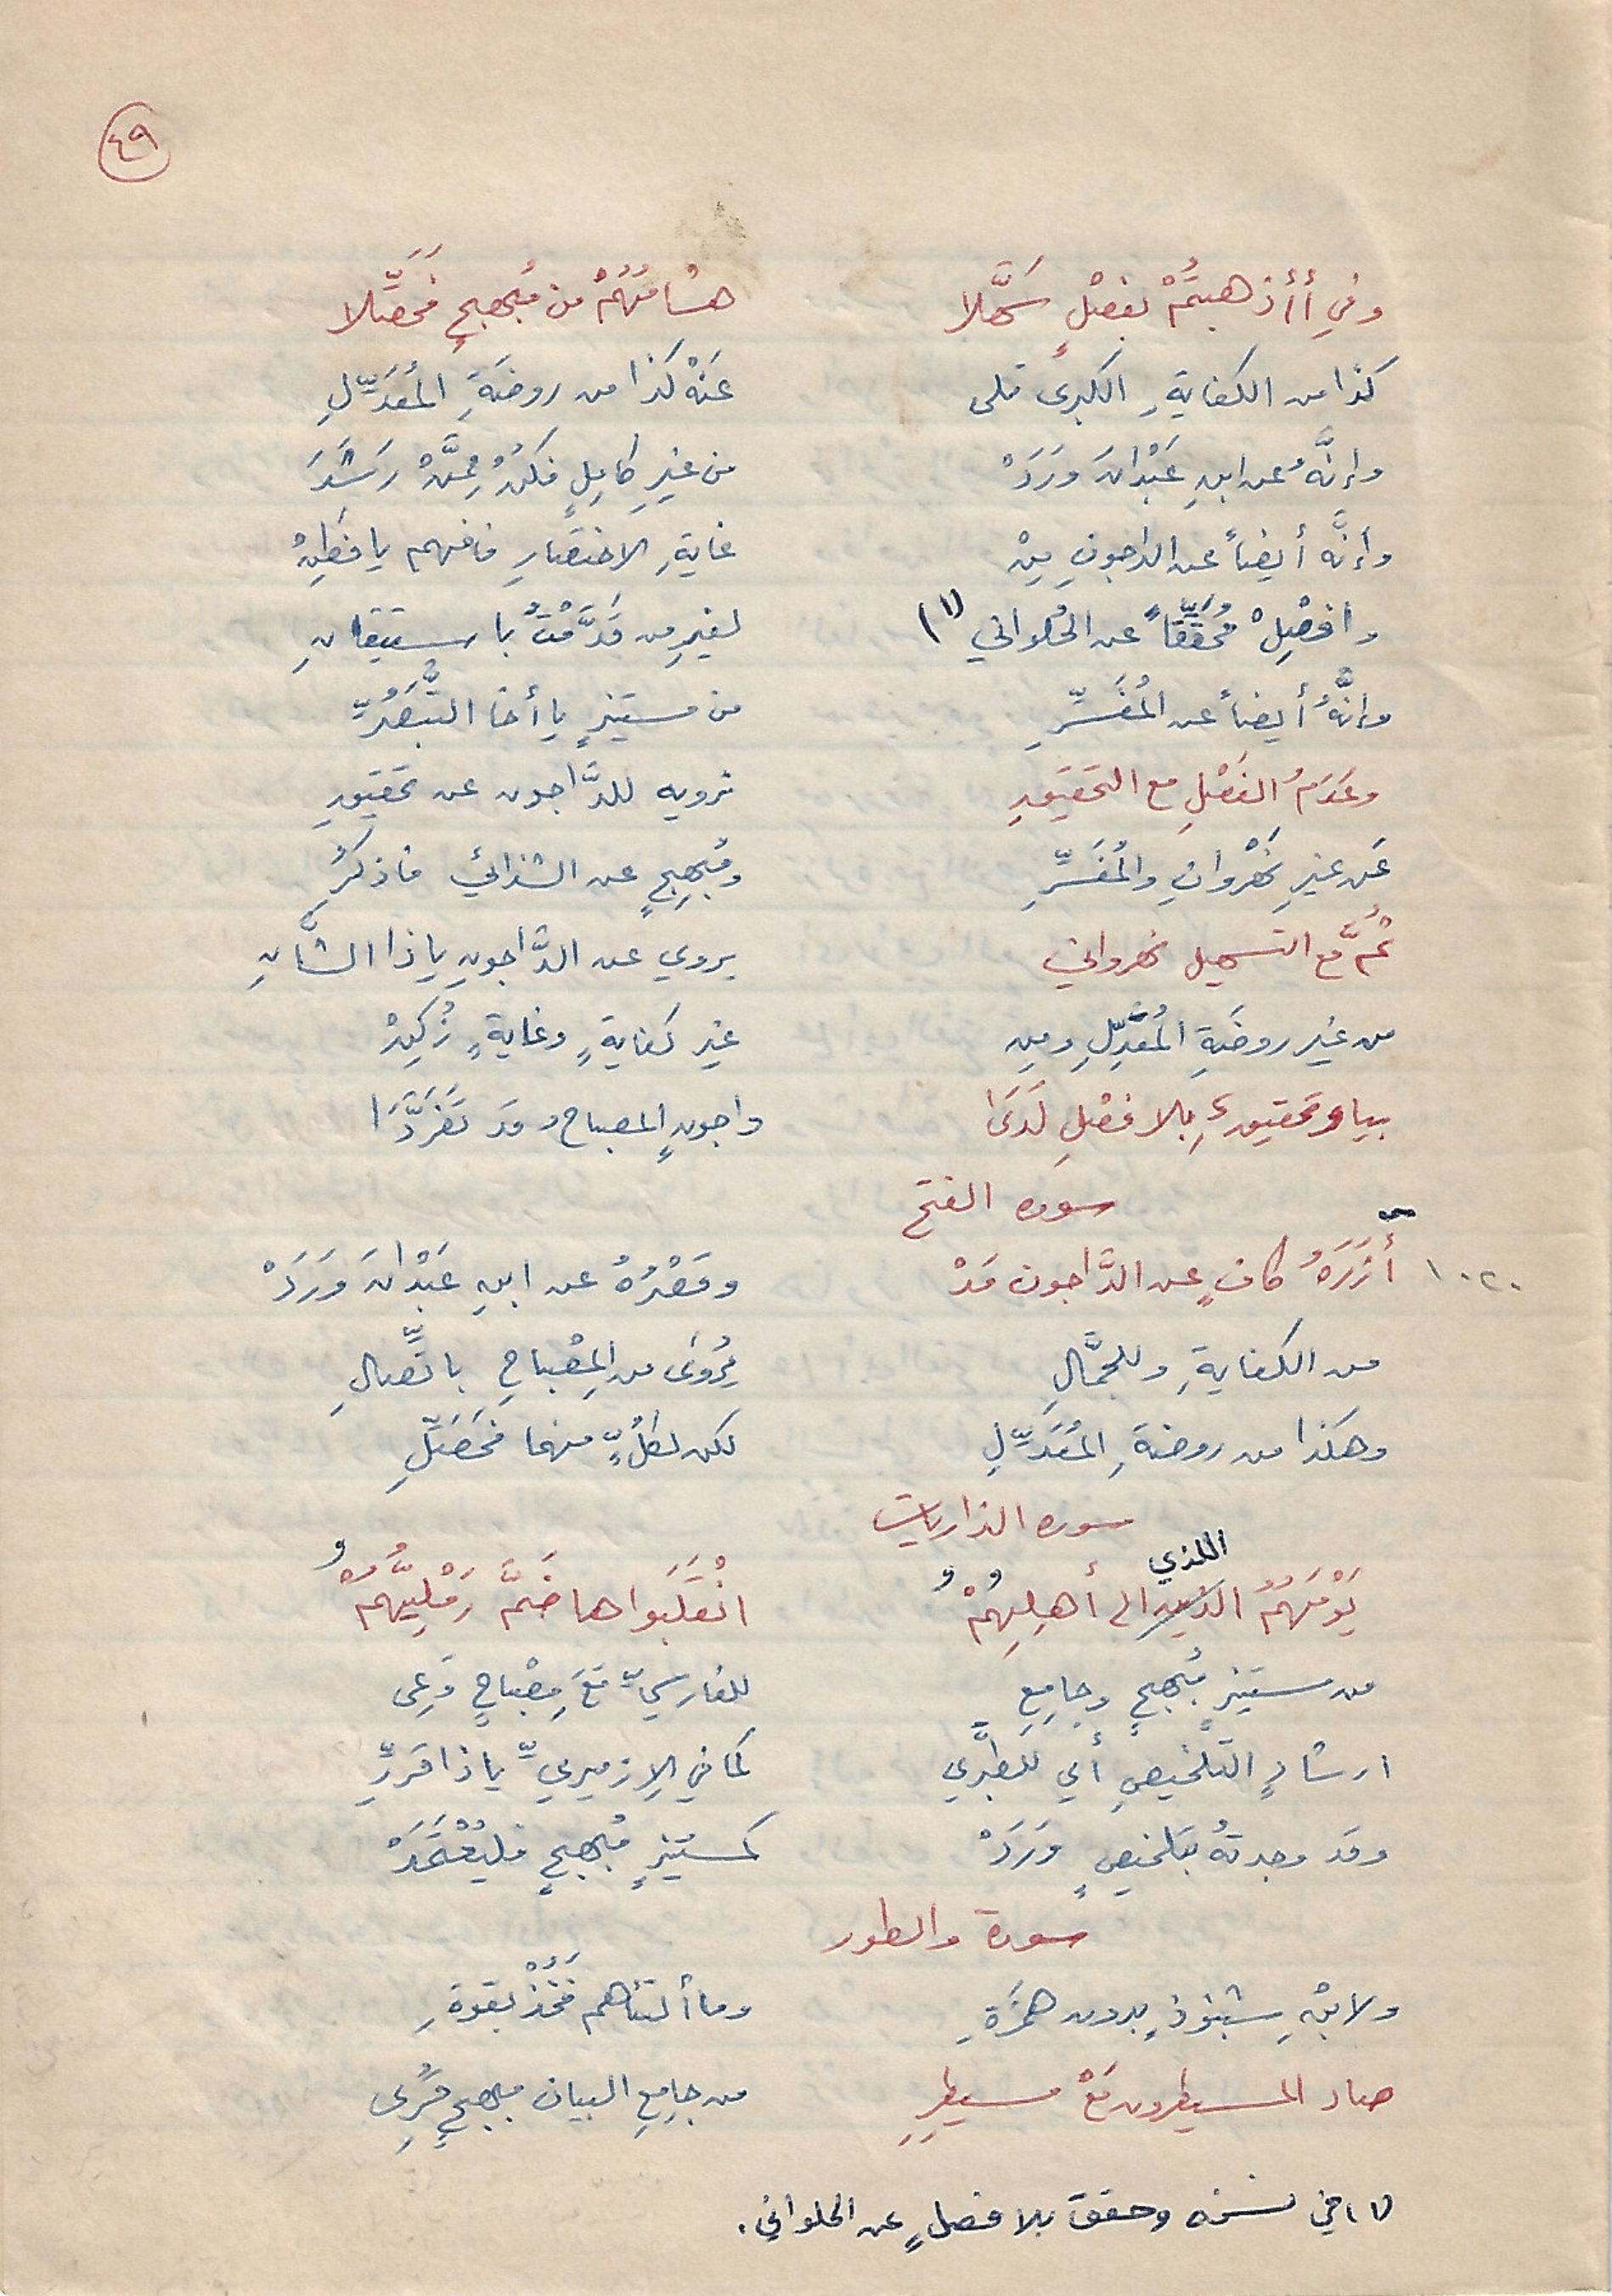 ٤٩
وفي أأذهبتُمْ بفصْلٍ سَهَّلا هشامُهُمْ من مُبهِجٍ فَحَصِّلا
كذا من الكفايةِ الكبرى تلى عَنْهُ كذا من روضَةِ المُعَدِّلِ
وإنَّهُ عن ابنِ عَبْدَانَ وَرَدَ من غيرِ كامِلٍ فكُنْ مِمَّنْ رَشَدَ
وإنَّه أيضاً عن الداجونِ مِنْ غايةِ الاختصارِ فافهم يا فَطِنْ
وافصِلْ مُحَقِّقاً عن الحُلواني (١) لغيرِ من قَدَّمْتُ باستيقانِ
وإنَّهُ أيضاً عن المُفَسِّرِ من مستنيرٍ يا أخا التَّبَصُّرِ
وعَدَمُ الفَصْلِ مع التحقيقِ نرويه للدَّاجون عن تحقيقِ
عَن غيرِ نَهْروانِ والمُفَسِّرِ ومُبهِجٍ عن الشذائي فاذكُرِ
ثُمَّ مع التسهيل نهرواني يروي عن الدَّاجونِ يا ذا الشَّانِ
من غير روضَةِ المُعَدِّلِ ومن غير كفايةٍ وغايةٍ زُكِنْ
بيا وتحقيق بِلا فصْلٍ لَدَى داجونٍ المصباح وقد تَفَرَّدَا
سوره الفتح
١٠٢٠ أَزَرَهُ كافٍ عن الدَّاجون قَدْ وقَصْرُهُ عن ابنِ عَبْدَانَ وَرَدَ
من الكفايةِ وللجمَّالِ يُروَى من المِصْباحِ باتِّصالِ
وهكذا من روضةِ المُعَدِّلِ لكن لكُلٍّ منهما فَحَصِّلِ
سوره الذاريات
اللذي
يَوْمَهُمُ الذين الى أهلِهِمُ و انْقَلَبَوا ها ضَمَّ رَمْلِيُّهُمُ و
من مستنيرٍ مُبهجٍ وجامِعِ للفارسيِّ مَعَ مِصْباحٍ وَعِى
ارشادٍ التلخيصِ أي للطبَري كما في الإزميريِّ يا ذا قَرِّرِ
وقد وجدتُهُ بتلخيصٍ وَرَدَ كمستنيرٍ مُبهجٍ فليُعْتَمَدْ
سورة والطور
ولابنِ شنبوذٍ بدون همزَةِ وما ألتناهم فَخُذْ بقوةِ
صاد المسيطرون مَعْ مسيطِرِ من جامِعِ البيان مبهجٍ قُرِى
(١) في نسخه وحقق بلا فصلٍ عن الحلواني.